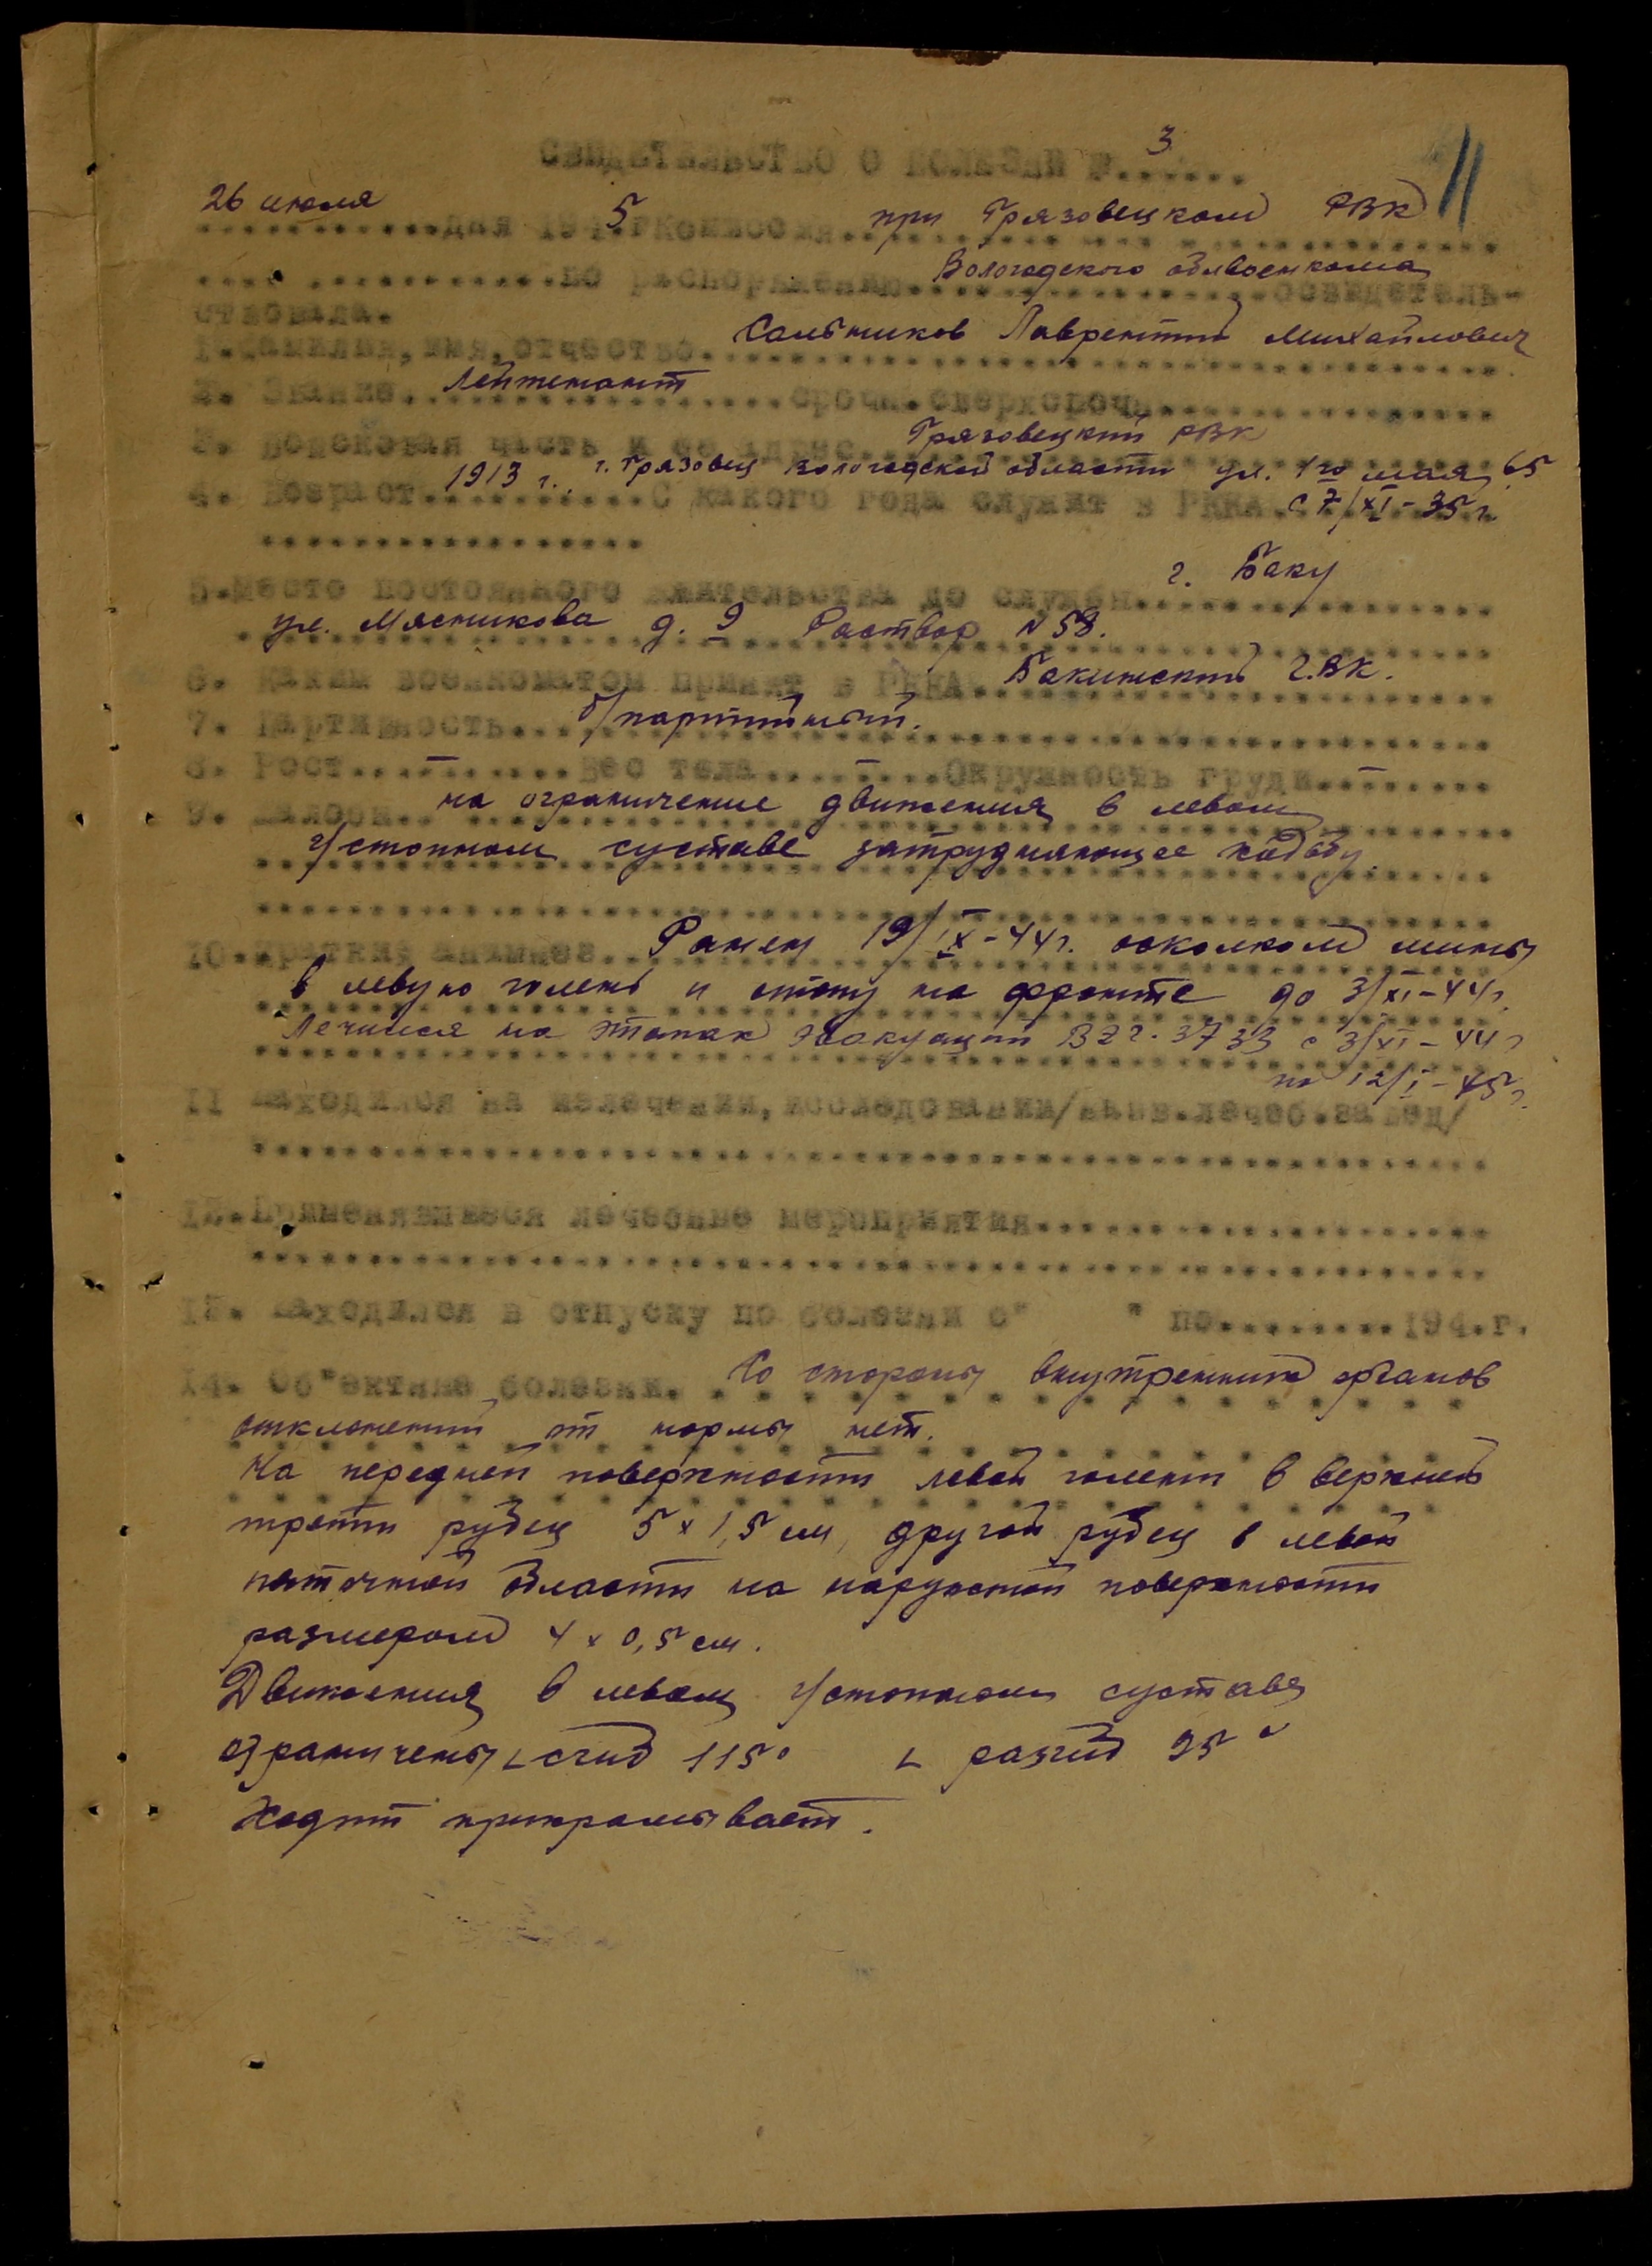 11
СВИДЕТЕЛЬСТВО О БОЛЕЗНИ № 3
26 июля дня 1945 г Комиссия при Грязовецком РВК
по распоряжению Вологодского облвоенкома освидетель-
ствовала.
1. Фамилия, имя, отчество. Сальников Лаврентий Михайлович
2. Звание. Лейтенант срочн. сверхсрочн.
3. Войсковая часть и ее адрес. Грязовецкий РВК
г. Грязовец Вологодской области ул. 1го мая 65
4. Возраст 1913 г. С какого года служит в РККА с 7/XI-35 г.
5. Место постоянного жительства до службы г. Баку
ул. Мясникова д. 9 №58.
6. Каким военкоматом принят в РККА. Бакинский Г.ВК.
7. Партийность. б/партийный.
8. Рост. – Вес тела – Окружность груди –
9. Жалобы. на ограничение движения в левом
г/стопном суставе затрудняющее ходьбу.
10. Краткий анамнез. Ранен 19/IX-44 г. осколком мины
в левую голень и стопу на фронте до 3/XI-44 г.
Лечился на этапах эвакуации В ЭГ. 3733 с 3/XI-44 г
по 12/I-45 г.
11 Находился на излечении, исследовании/назв. лечеб. завед/
12. Применявшиеся лечебные мероприятия
13. Находился в отпуску по болезни с" " по 194. г.
14. Об"ективно болезни. Со стороны внутренних органов
отклонений от нормы нет.
На передней поверхности левой голени в верхней
трети рубец 5 x 1,5 см, другой рубец в левой
пяточной области на наружной поверхности
размером 4 x 0,5 см.
Движения в левом г/стопном суставе
ограничены ∟ сгиб 115° ∟ разгиб 95°
Ходит прихрамывает.